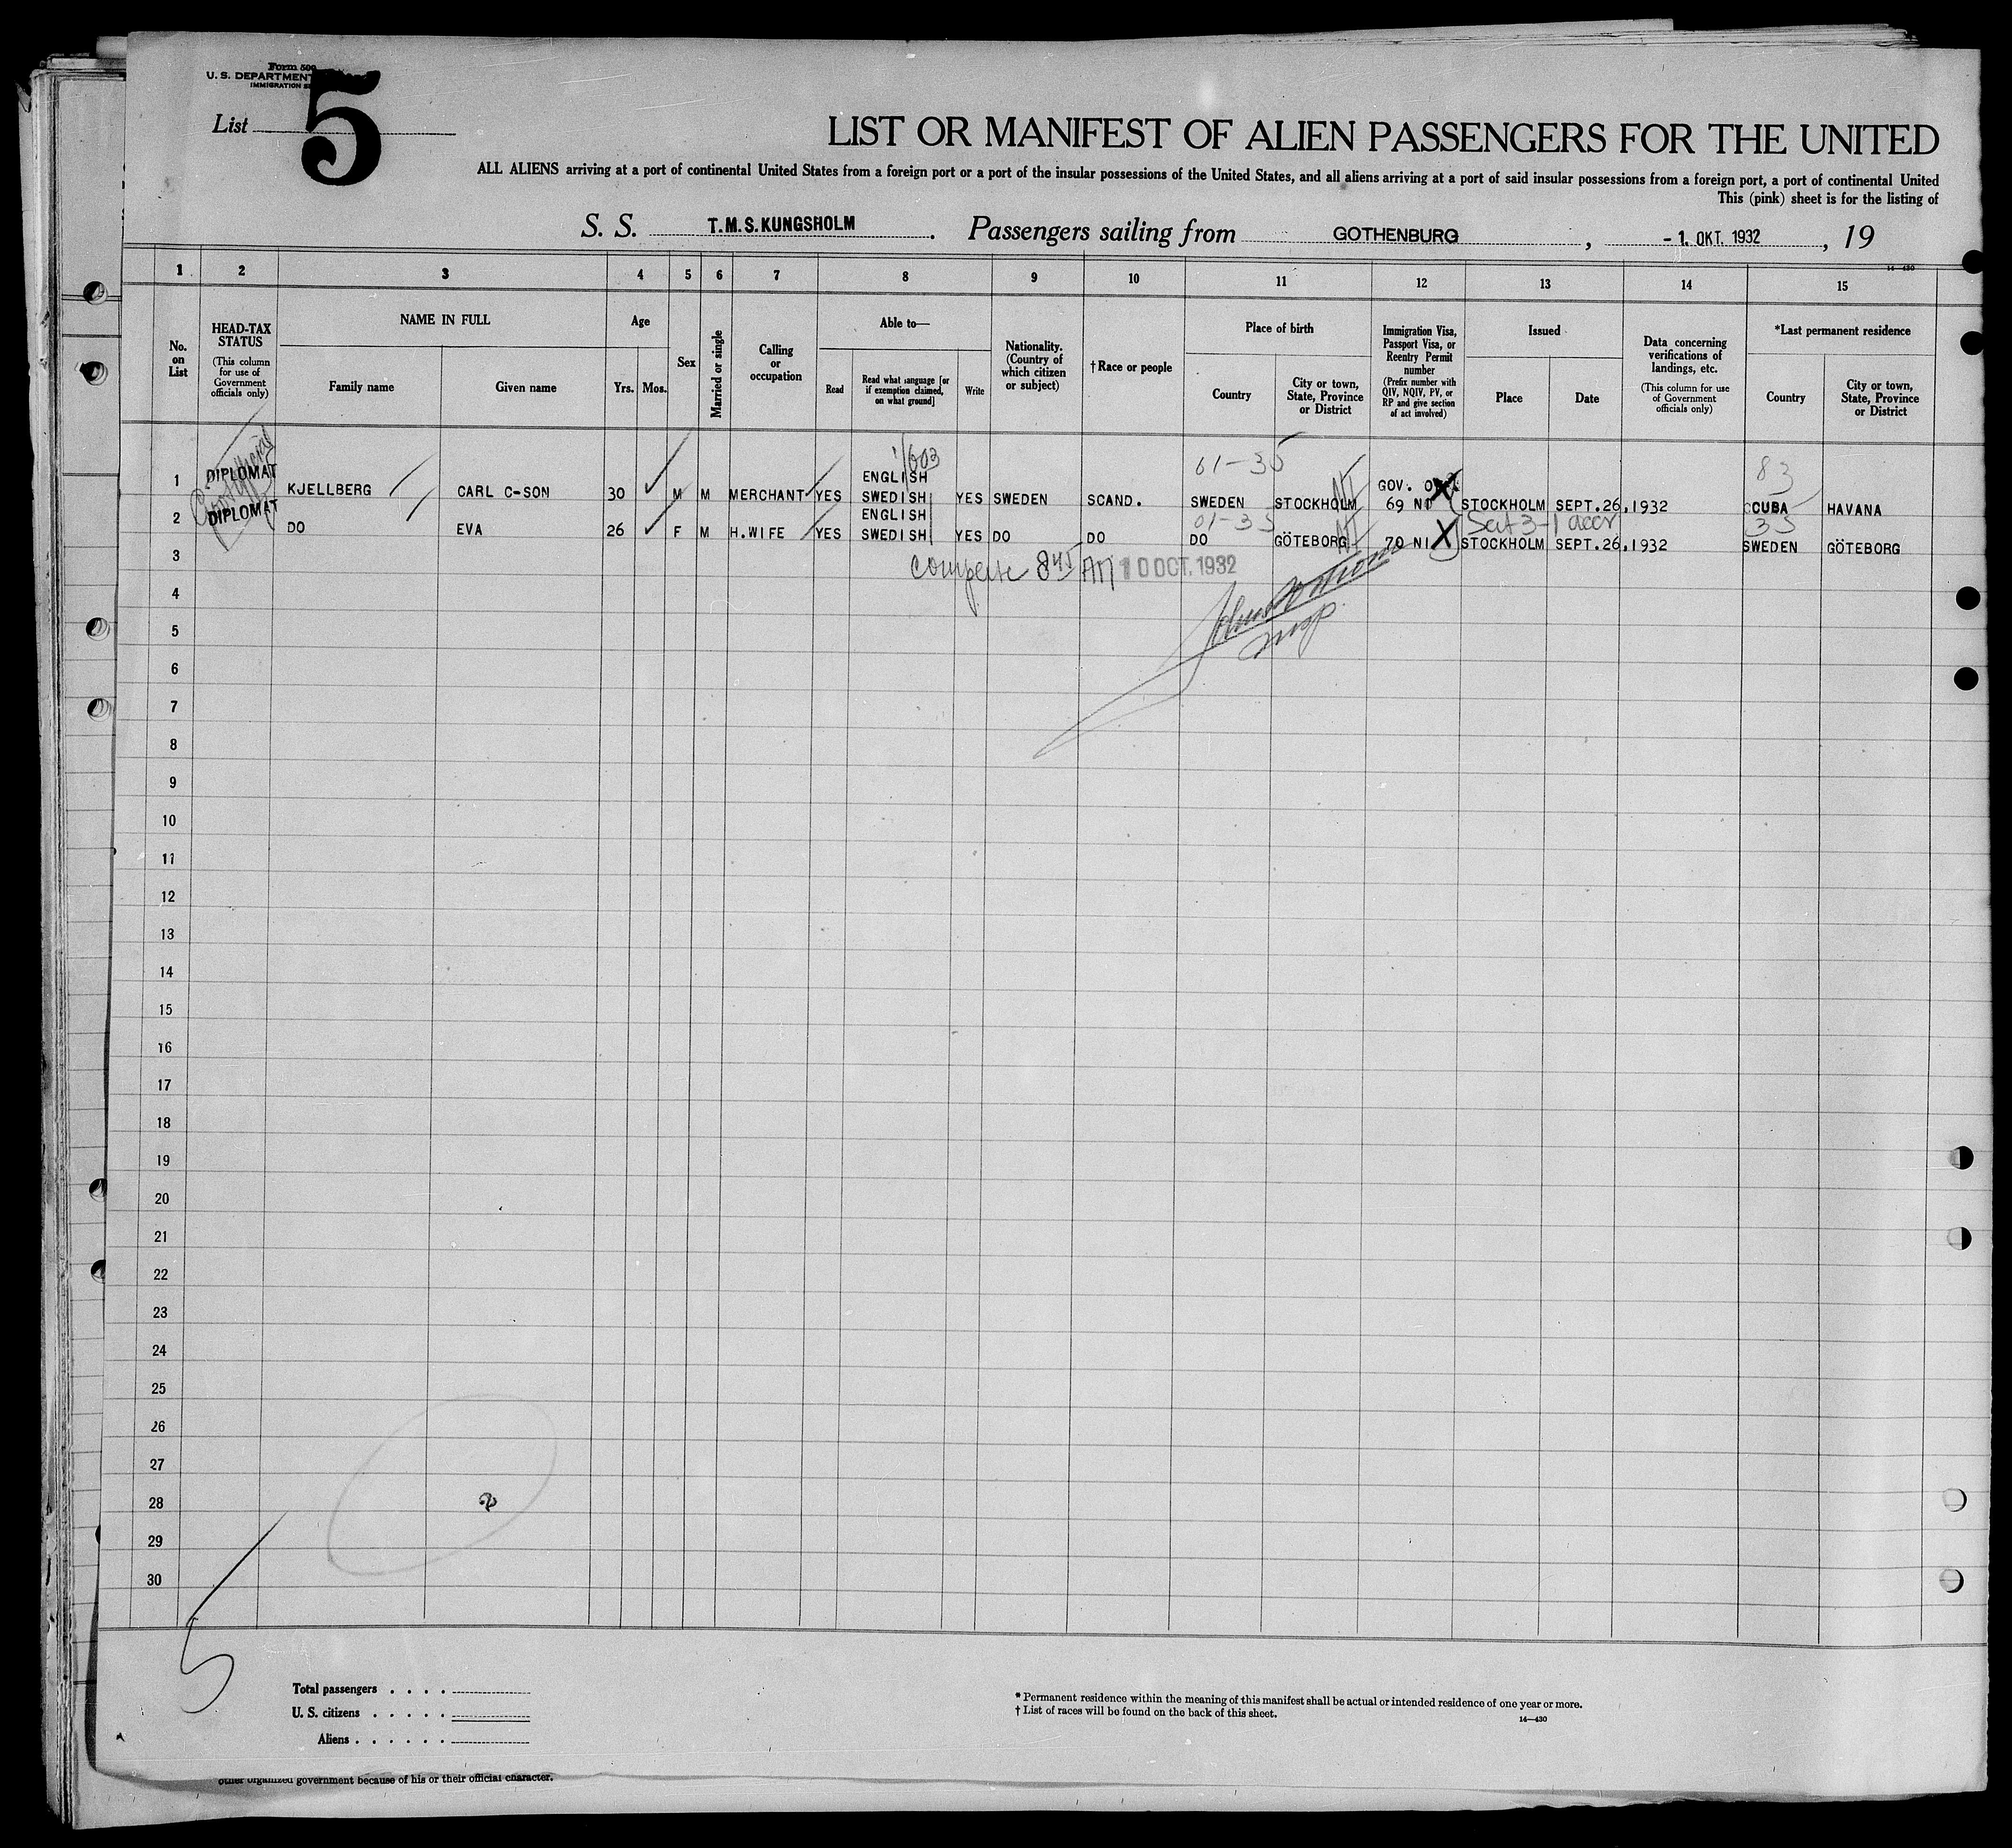 Form 500
U. S. DEPARTMENT
IMMIGRATION
List 5
LIST OR MANIFEST OF ALIEN PASSENGERS FOR THE UNITED
ALL ALIENS arriving at a port of continental United States from a foreign port or a port of the insular possessions of the United States, and all aliens arriving at a port of said insular possessions from a foreign port, a port of continental United
This (pink) sheet is for the listing of
S. S. T.M.S.KUNGSHOLM. Passengers sailing from GOTHENBURG, -1. OKT. 1932, 19
14—430
1 2 3 4 5 6 7 8 9 10 11 12 13 14 15
No. on List
HEAD-TAX STATUS
(This column for use of Government officials only)
NAME IN FULL
Family name
Given name
Age
Yrs. Mos.
Sex
Married or single
Calling or occupation
Able to—
Read
Read what language [or if exemption claimed, on what ground]
Write
Nationality. (Country of which citizen or subject)
†Race or people
Place of birth
Country
City or town, State, Province or District
Immigration Visa, Passport Visa, or Reentry Permit number
(Prefix number with QIV, NQIV, PV, or RP and give section of act involved)
Issued
Place
Date
Data concerning verifications of landings, etc.
(This column for use of Government officials only)
*Last permanent residence
Country
City or town, State, Province or District
1/603
01-35
83
1 DIPLOMAT KJELLBERG CARL C-SON 30 M M MERCHANT YES ENGLISH SWEDISH YES SWEDEN SCAND. SWEDEN STOCKHOLM GOV. 69 STOCKHOLM SEPT.26,1932 CUBA HAVANA
01-35
Sect 3-1 accr
35
2 DIPLOMAT DO EVA 26 F M H.WIFE YES ENGLISH SWEDISH YES DO DO DO GÖTEBORG 70 NI STOCKHOLM SEPT.26,1932 SWEDEN GÖTEBORG
3
8 45 AM 10 OCT. 1932
4
Insp.
5
6
7
8
9
10
11
12
13
14
15
16
17
18
19
20
21
22
23
24
25
26
27
28
29
30
5
Total passengers . . . .
U. S. citizens . . . . .
Aliens . . . . . .
* Permanent residence within the meaning of this manifest shall be actual or intended residence of one year or more.
† List of races will be found on the back of this sheet.
14—430
other organized government because of his or their official character.